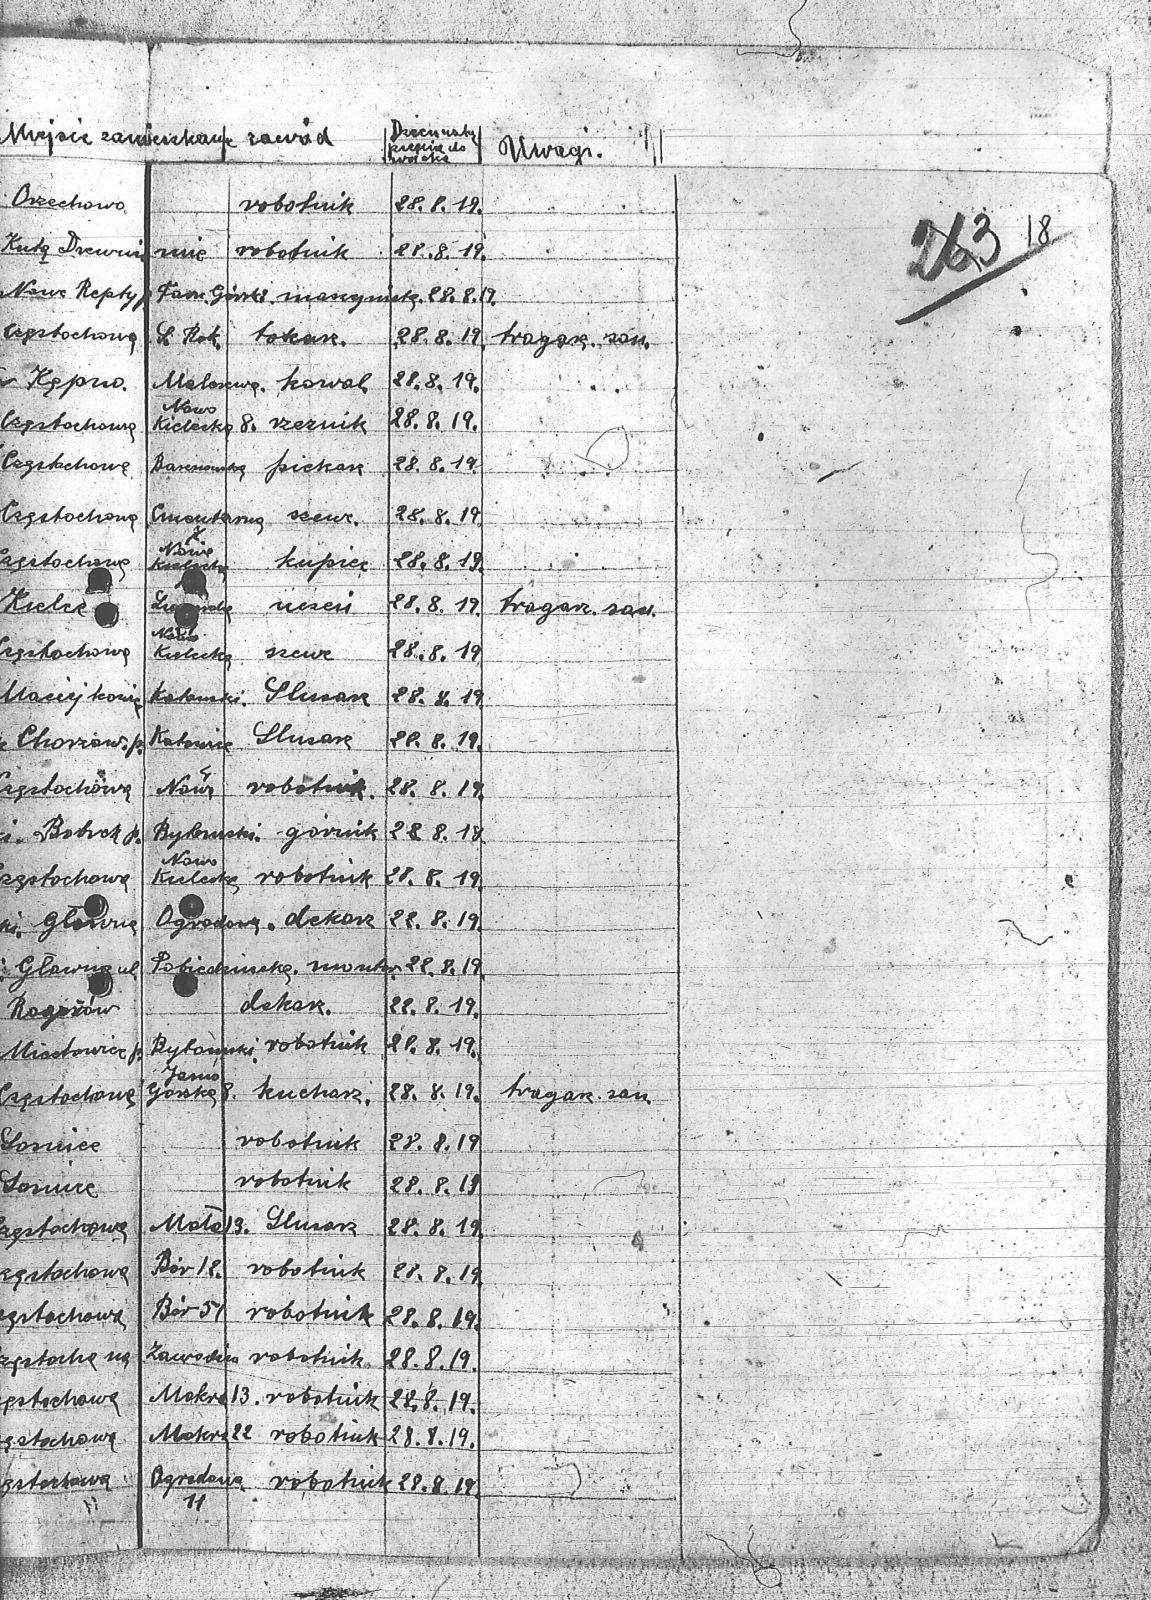 Miejsce zamieszkanie zawód Dzień wstąpienia do wojska Uwagi.
263 18
Orzechowo robotnik 28.8.19.
robotnik 28.8.19.
Nowe Repty Tarn. Górski maszynista 28.8.19.
Częstochowa Ś. Rok. tokarz. 28.8.19. tragarz. san.
Kępno. kowal 28.8.19.
Częstochowa Nowo Kielecka 8. rzeznik 28.8.19.
Częstochowa piekarz 28.8.19
Częstochowa Cmentarna szewc. 28.8.19
Częstochowa Nowo Kielecka kupiec 28.8.19.
Kielce uczeń 28.8.19 tragarz. san.
Częstochowa Nowo Kielecka szewc 28.8.19
Maciejkowice Katowski. Slusarz 28.8.19
Chorzów. p. Katowice Slusarz 28.8.19.
Częstochowa Nowa robotnik. 28.8.19.
Bobrek p. Bytomski. górnik 28.8.19
Częstochowa Nowo Kielecka robotnik 28.8.19.
Główna Ogrodowa. dekarz 28.8.19.
Główna ul. Pobiedziska. monter 28.8.19.
dekarz. 28.8.19.
Miechowice p. Bytomski. robotnik 28.8.19.
Częstochowa Jasno Górska 8. kucharz. 28.8.19. tragarz. san.
Sosnice robotnik 28.8.19
Sosnice robotnik 28.8.19
Częstochowa Mała 13. Slusarz 28.8.19
Częstochowa Bór 12. robotnik 28.8.19.
Częstochowa Bór 51 robotnik 28.8.19.
Zawodzie robotnik 28.8.19.
Częstochowa Mokra 13. robotnik 28.8.19.
Częstochowa Mokra 22 robotnik 28.8.19.
Częstochowa Ogrodowa robotnik 28.8.19.
11